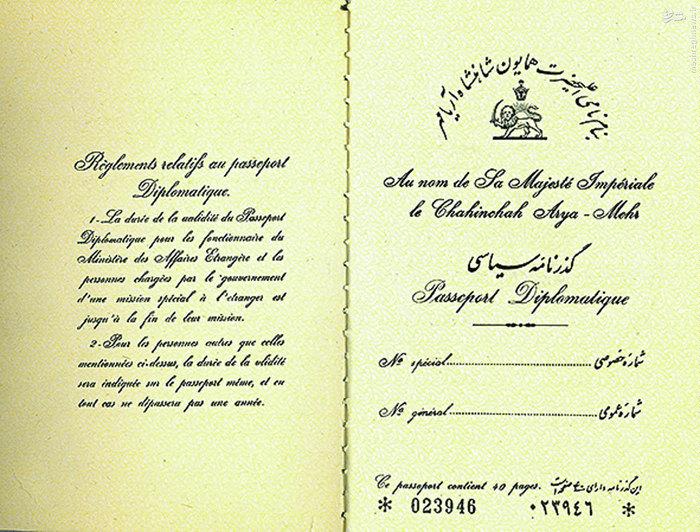 Règlements relatifs au passeport
Diplomatique.
1-La durée de la aalidité du Passeport
Diplomatique pour les fonctionnaire du
Ministère des Affaires Etrangère et les
personnes chargées par le gouvernement
d'une mission spécial à l'etranger est
jusqu'à la fin de leur mission.
2-Pour les personnes autres que celles
mentionnées ci-dessus, la durée de la vlidité
sera indiquée sur le passeport même, et en
tout cas ne dépassera pas une année.
بنام نامی اعلیحضرت همایون شاهنشاه آریامهر
Au nom de Sa Majesté Impériale
le Chahinchah Arya-Mehr
گذرنامه سیاسی
Passeport Diplomatique
Nº spécial شماره خصوصی
Nº général شماره عمومی
Ce passeport contient 40 pages. این گذرنامه دارای ۴۰ صفحه است
* 023946 ۰۲۳۹۴۶ *